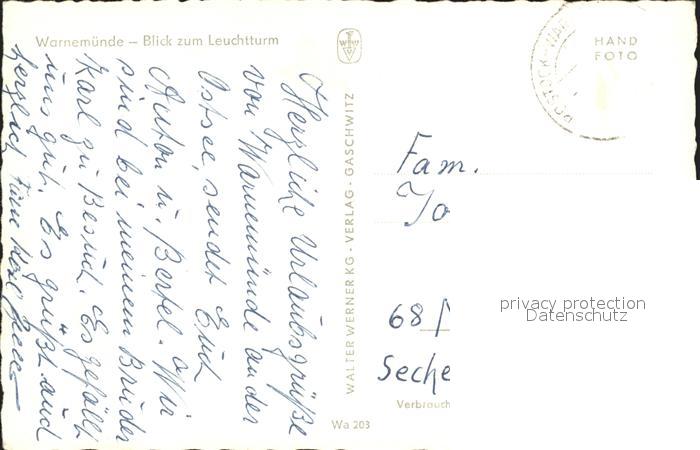 Warnemünde – Blick zum Leuchtturm
HAND
FOTO
Herzliche Urlaubsgrüße
von Warnemünde an der
Ostsee, sendet Euch
Anton u. Bertel. Wir
sind bei meinem Bruder
Karl zu Besuch. Es gefällt
uns gut. Es grüßt auch
herzlich
WALTER WERNER KG · VERLAG · GASCHWITZ
Fam.
Jo
68
Seche
privacy protection
Datenschutz
Verbrauch
Wa 203